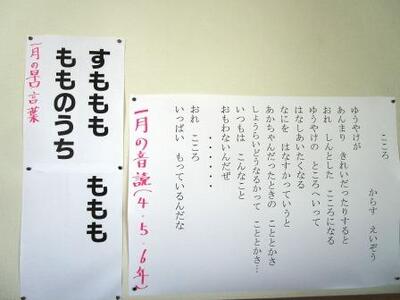 一月の早口言葉
すももも
もものうち
ももも
こころ
からす えいぞう
ゆうやけが
あんまり きれいだったりすると
おれ しんとした こころになる
ゆうやけの ところへいって
はなしあいたくなる
なにを はなすかっていうと
あかちゃんだったときの こととかさ
しょうらいどうなるかって こととかさ…
いつもは こんなこと
おもわないんだぜ
・・・・・
おれ こころ
いっぱい もっているんだな
一月の音読(4・5・6年)